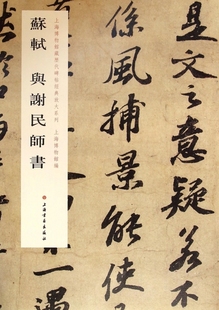 是文之意疑若不
係風捕景能使
上海博物館藏歷代碑帖經典放大系列 上海博物館編
蘇軾 與謝民師書
上海書畫出版社